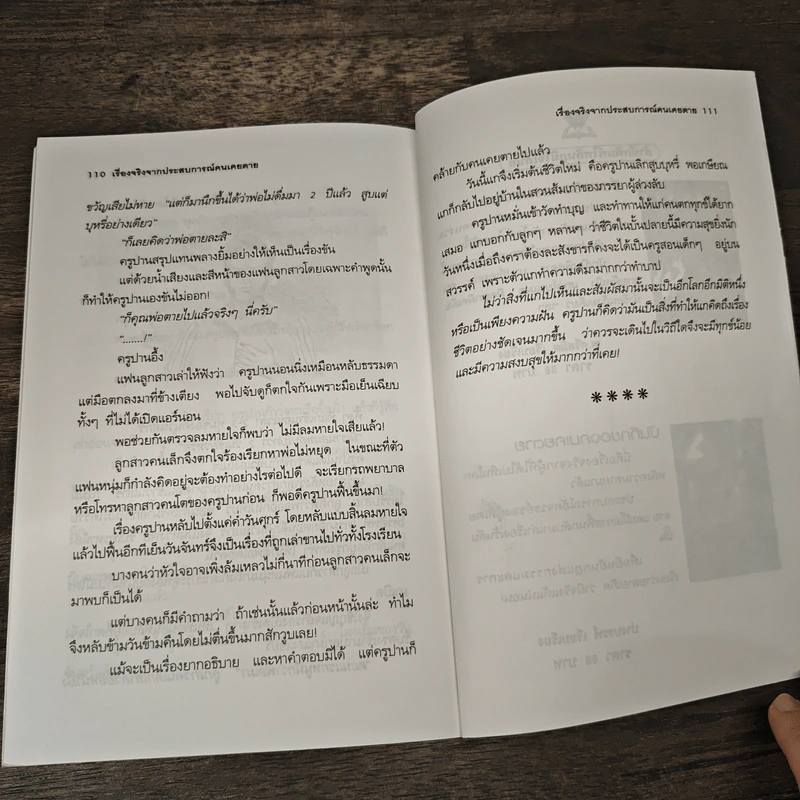 110 เรื่องจริงจากประสบการณ์คนเคยตาย
ขวัญเสียไม่หาย "แต่ก็มานึกขึ้นได้ว่าพ่อไม่ดื่มมา 2 ปีแล้ว สูบแต่
บุหรี่อย่างเดียว"
"ก็เลยคิดว่าพ่อตายละสิ"
ครูปานสรุปแทนพลางยิ้มอย่างให้เห็นเป็นเรื่องขัน
แต่ด้วยน้ำเสียงและสีหน้าของแฟนลูกสาวโดยเฉพาะคำพูดนั้น
ก็ทำให้ครูปานเองขันไม่ออก!
"ก็คุณพ่อตายไปแล้วจริงๆ นี่ครับ"
".......!"
ครูปานอึ้ง
แฟนลูกสาวเล่าให้ฟังว่า ครูปานนอนนิ่งเหมือนหลับธรรมดา
แต่มือตกลงมาที่ข้างเตียง พอไปจับดูก็ตกใจกันเพราะมือเย็นเฉียบ
ทั้งๆ ที่ไม่ได้เปิดแอร์นอน
พอช่วยกันตรวจลมหายใจก็พบว่า ไม่มีลมหายใจเสียแล้ว!
ลูกสาวคนเล็กจึงตกใจร้องเรียกหาพ่อไม่หยุด ในขณะที่ตัว
แฟนหนุ่มก็กำลังคิดอยู่จะต้องทำอย่างไรต่อไปดี จะเรียกรถพยาบาล
หรือโทรหาลูกสาวคนโตของครูปานก่อน ก็พอดีครูปานฟื้นขึ้นมา!
เรื่องครูปานหลับไปตั้งแต่ค่ำวันศุกร์ โดยหลับแบบสิ้นลมหายใจ
แล้วไปฟื้นอีกทีเย็นวันจันทร์จึงเป็นเรื่องที่ถูกเล่าขานไปทั่วทั้งโรงเรียน
บางคนว่าหัวใจอาจเพิ่งล้มเหลวไม่กี่นาทีก่อนลูกสาวคนเล็กจะ
มาพบก็เป็นได้
แต่บางคนก็มีคำถามว่า ถ้าเช่นนั้นแล้วก่อนหน้านั้นล่ะ ทำไม
จึงหลับข้ามวันข้ามคืนโดยไม่ตื่นขึ้นมาสักวูบเลย!
แม้จะเป็นเรื่องยากอธิบาย และหาคำตอบมิได้ แต่ครูปานก็
เรื่องจริงจากประสบการณ์คนเคยตาย 111
คล้ายกับคนเคยตายไปแล้ว
วันนี้แกจึงเริ่มต้นชีวิตใหม่ คือครูปานเลิกสูบบุหรี่ พอเกษียณ
แกก็กลับไปอยู่บ้านในสวนส้มเก่าของภรรยาผู้ล่วงลับ
ครูปานหมั่นเข้าวัดทำบุญ และทำทานให้แก่คนตกทุกข์ได้ยาก
เสมอ แกบอกกับลูกๆ หลานๆ ว่าชีวิตในบั้นปลายนี้มีความสุขยิ่งนัก
วันหนึ่งเมื่อถึงคราต้องละสังขารก็คงจะได้เป็นครูสอนเด็กๆ อยู่บน
สวรรค์ เพราะตัวแกทำความดีมามากกว่าทำบาป
ไม่ว่าสิ่งที่แกไปเห็นและสัมผัสมานั้นจะเป็นอีกโลกอีกมิติหนึ่ง
หรือเป็นเพียงความฝัน ครูปานก็คิดว่ามันเป็นสิ่งที่ทำให้แกคิดถึงเรื่อง
ชีวิตอย่างชัดเจนมากขึ้น ว่าควรจะเดินไปในวิถีใดจึงจะมีทุกข์น้อย
และมีความสงบสุขให้มากกว่าที่เคย!
****